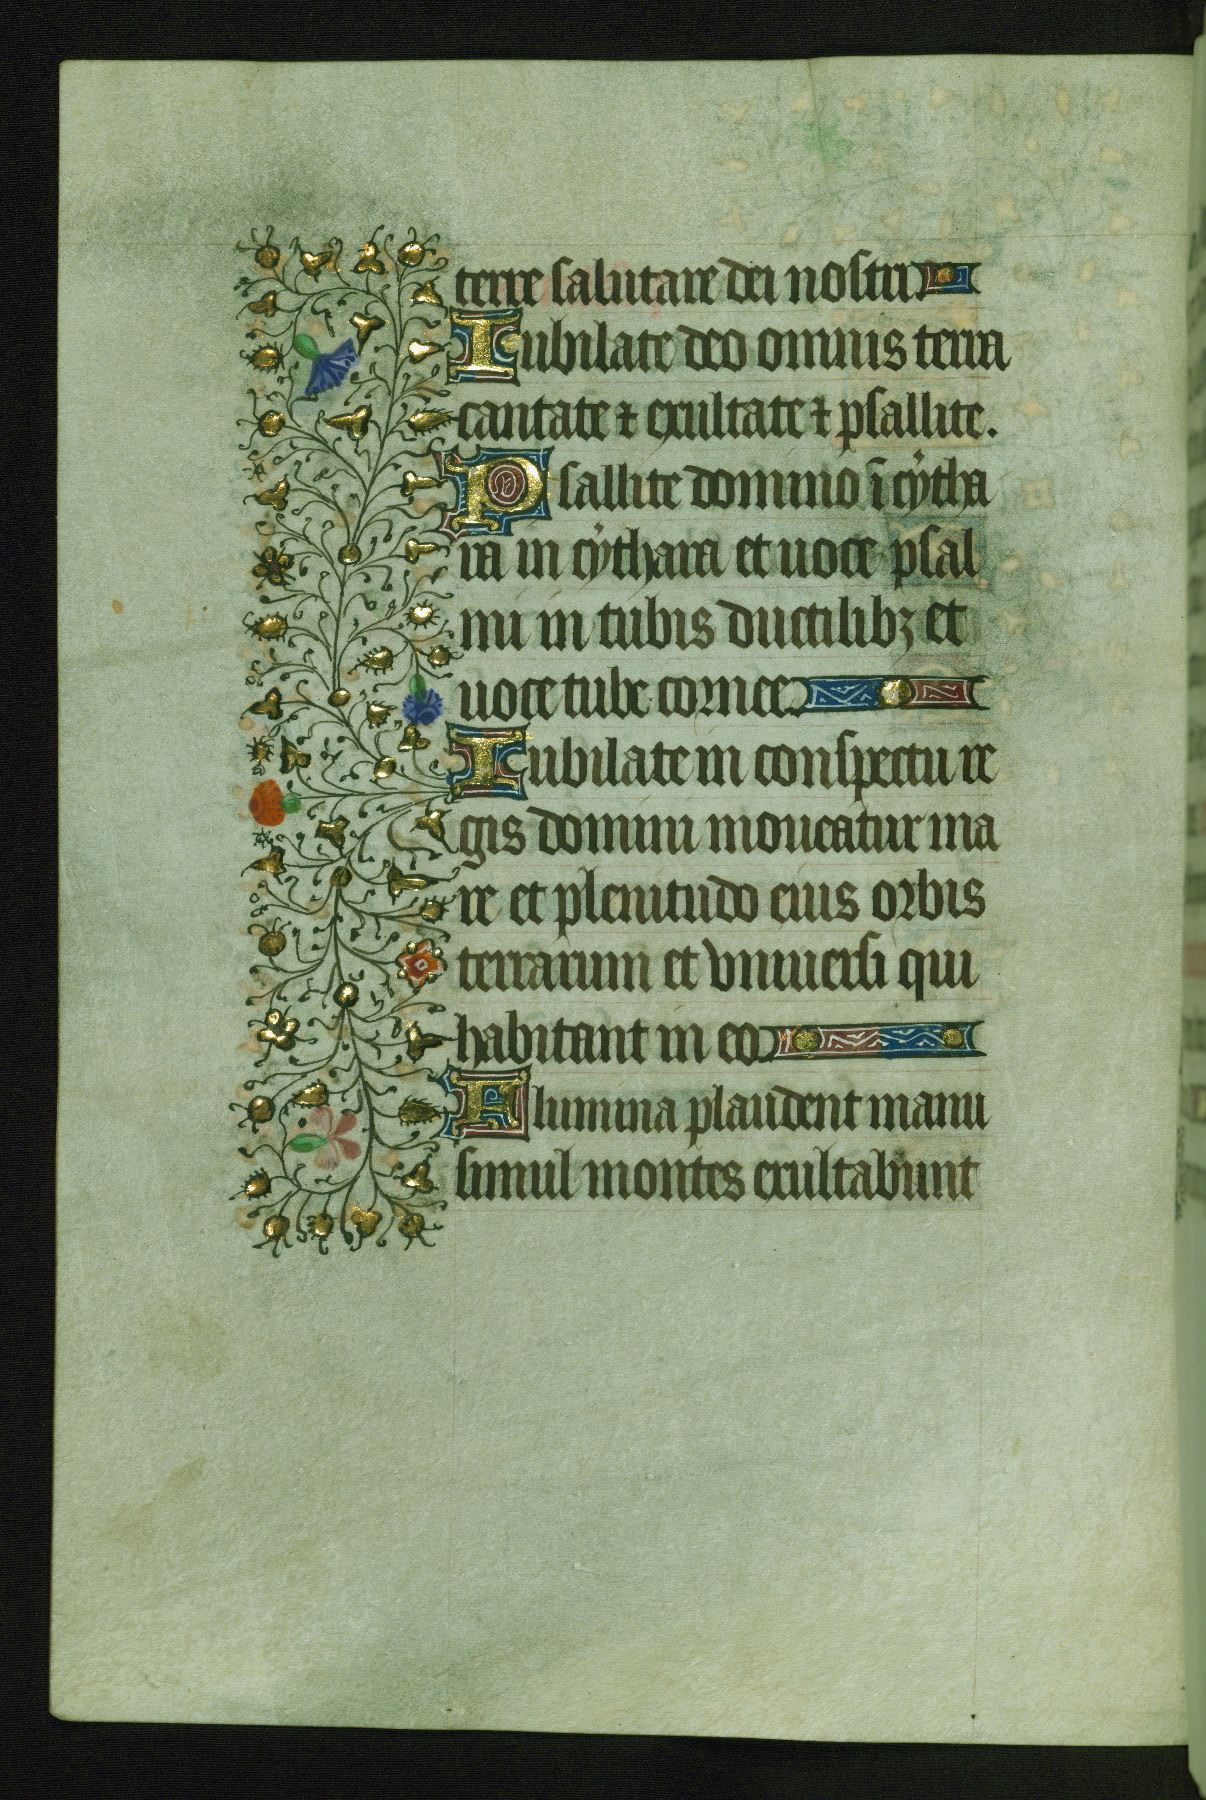 terre salutare dei nostri
Iubilate deo omnis terra
cantate ⁊ exultate ⁊ psallite.
Psallite domino ī cẏtha
ra in cẏthara et uoce psal
mi in tubis ductilibꝫ et
uoce tube cornee
Iubilate in conspectu re
gis domini moueatur ma
re et plenitudo eius orbis
terrarum et vniuersi qui
habitant in eo
Flumina plaudent manu
simul montes exultabunt